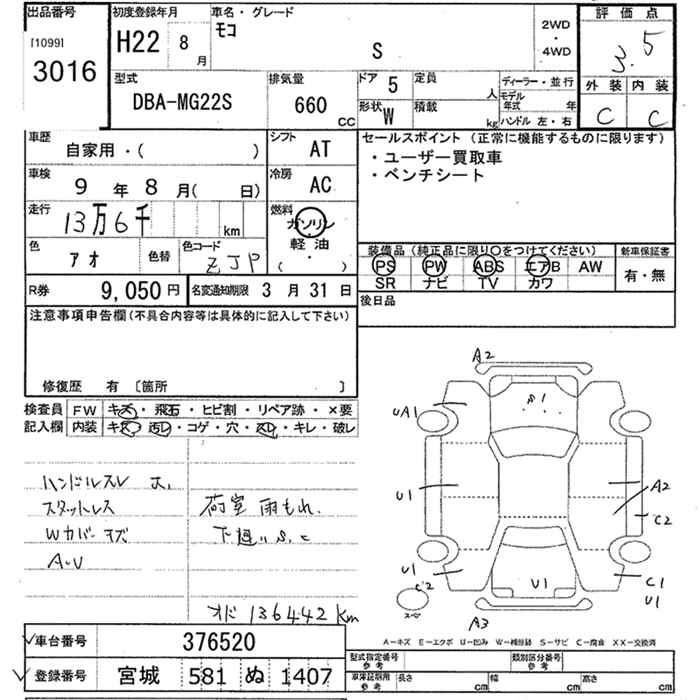 出品番号 初度登録年月 車名・グレード 評価点
[1099] H22 8月 モコ 2WD・4WD 3.5
3016 S 外装 内装
型式 排気量 ドア 5 定員 人 ディーラー・並行 C C
DBA-MG22S 660 CC 形状 W 積載 kg モデル年式 年
ハンドル 左・右
車歴 シフト セールスポイント (正常に機能するものに限ります)
自家用・( ) AT ・ユーザー買取車
車検 冷房 ・ベンチシート
9 年 8 月( 日) AC
走行 燃料
13万6千 km ガソリン・軽油
色 色替 色コード ( ) 装備品 (純正品に限り○をつけてください) 新車保証書
アオ ZJP PS PW ABS エアB AW 有・無
R券 9,050円 名変通知期限 3月31日 SR ナビ TV カワ
後日品
注意事項申告欄 (不具合内容等は具体的に記入して下さい)
修復歴 有 〔箇所 〕
検査員 FW キズ・飛石・ヒビ割・リペア跡・×要
記入欄 内装 キズ 汚レ・コゲ・穴・スレ・キレ・破レ
ハンドルスレ 大
スタットレス 荷室 雨もれ
Wカバーキズ 下廻りS.C
A・U
オド 136442 km
A2
UA1 S1
U1 A2
C2
U1 C2 U1 C1
U1
スペア A3
A−キズ E−エクボ U−凹み W−補修跡 S−サビ C−腐食 XX−交換済
車台番号 376520 型式指定番号 参考 類別区分番号 参考
登録番号 宮城 581 ぬ 1407 車庫証明用 参考 長さ cm 幅 cm 高さ cm